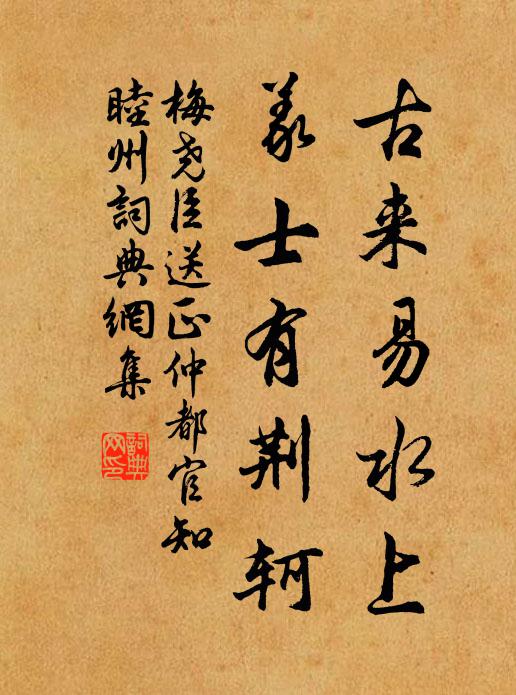 古来易水上
义士有荆轲
梅尧臣送正仲都官知
睦州詞典網集
詞典网印